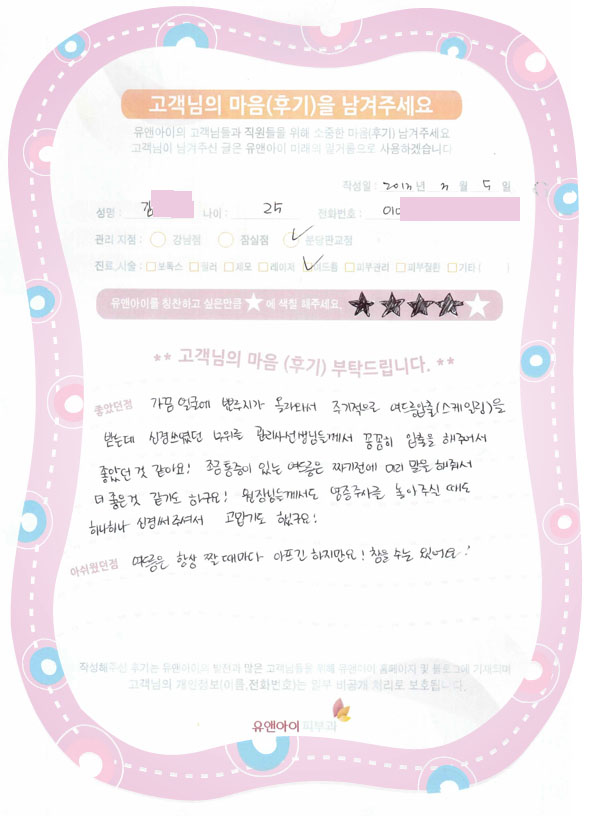 고객님의 마음(후기)을 남겨주세요
유앤아이의 고객님들과 직원들을 위해 소중한 마음(후기) 남겨주세요
고객님이 남겨주신 글은 유앤아이 미래의 밑거름으로 사용하겠습니다
작성일 : 2013 년 3 월 5 일
성명 : 김 나이 : 25 전화번호 : 010
관리 지점 : 강남점 잠실점 분당판교점
진료,시술 : 보톡스 필러 제모 레이저 여드름 피부관리 피부질환 기타 ( )
유앤아이를 칭찬하고 싶은만큼 ★에 색칠 해주세요 ★★★★★
** 고객님의 마음 (후기) 부탁드립니다. **
좋았던점 가끔 얼굴에 뾰루지가 올라와서 주기적으로 여드름압출(스케일링)을
받는데 신경쓰였던 부위를 관리사선생님들께서 꼼꼼히 압출을 해주어서
좋았던 것 같아요! 조금 통증이 있는 여드름은 짜기전에 미리 말을 해줘서
더 좋은것 같기도 하구요! 원장님들께서도 염증주사를 놓아주신 때도
하나하나 신경써주셔서 고맙기도 했구요!
아쉬웠던점 여드름은 항상 짤 때마다 아프긴 하지만요! 참을 수는 있어요!
작성해주신 후기는 유앤아이의 발전과 많은 고객님들을 위해 유앤아이 홈페이지 및 블로그에 기재되며
고객님의 개인정보(이름,전화번호)는 일부 비공개 처리로 보호됩니다.
유앤아이 피부과